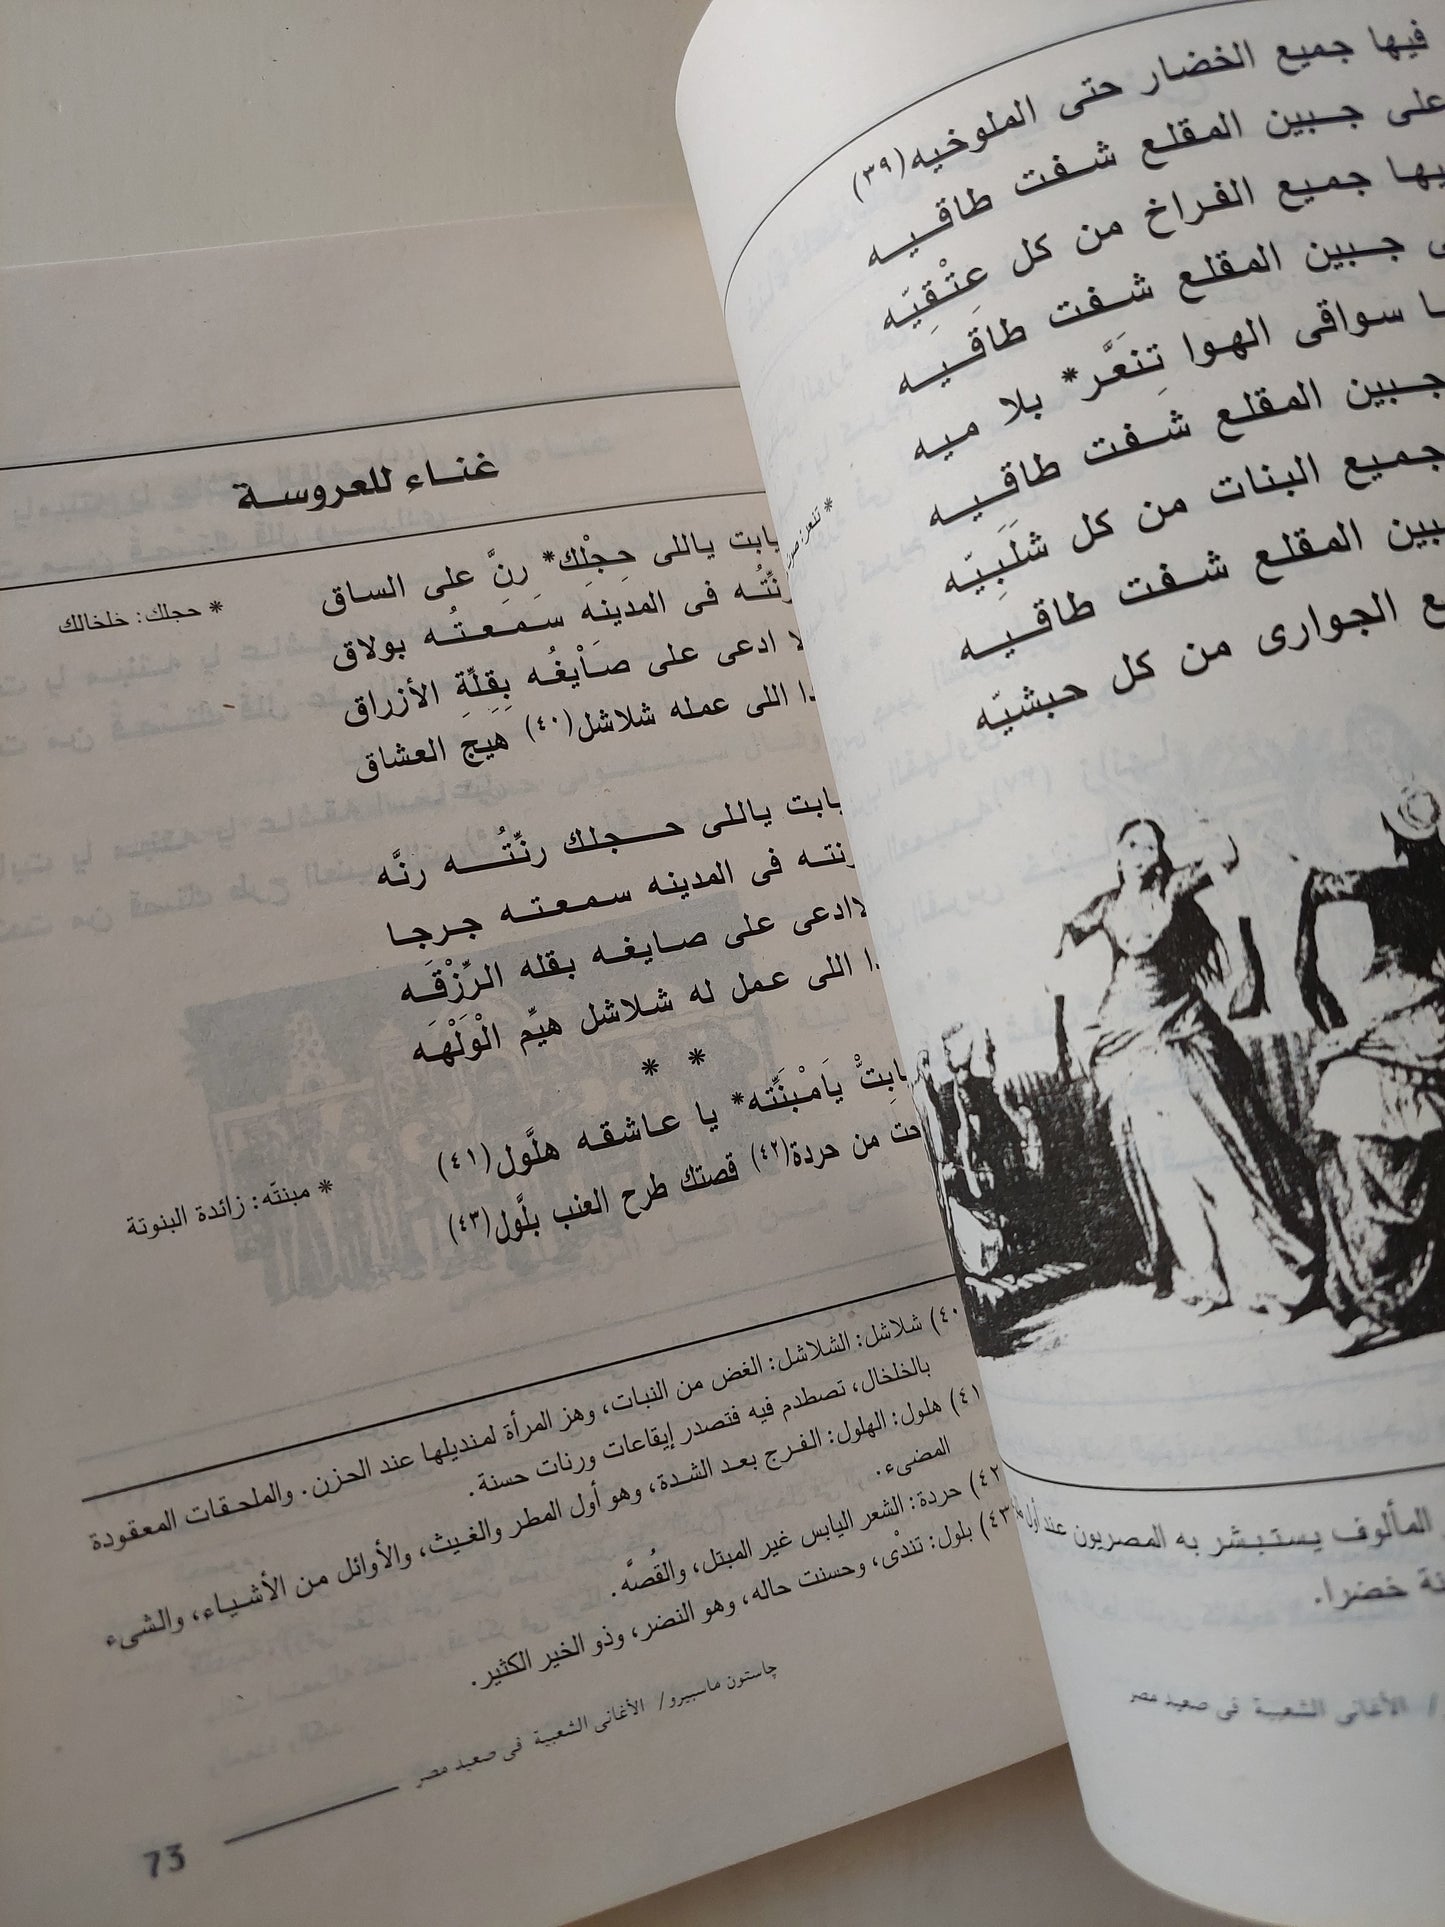 فيها جميع الخضار حتى الملوخيه (٣٩)
على جبين المقلع شفت طاقيه
جميع الفراخ من كل عِتْقِيّه
جبين المقلع شفت طاقيه
سواقى الهوا تِنعَّر* بلا ميه
جبين المقلع شفت طاقيه
جميع البنات من كل شَلَبِيّه
المقلع شفت طاقيه
الجوارى من كل حبشيّه
* تنعر:
المألوف يستبشر به المصريون عند أول
خضرا.
/ الأغانى الشعبية فى صعيد مصر
غناء للعروسة
ياللى حِجْلِك* رنَّ على الساق
فى المدينه سَمَعتُه بولاق
ادعى على صَاْيغُه بِقِلِّةِ الأزراق
اللى عمله شلاشل (٤٠) هيج العشاق
* حجلك: خلخالك
ياللى حجلك رنِّتُه رنَّه
رنته فى المدينه سمعته جرجا
ادعى على صايغه بقله الرِّزْقَه
اللى عمل له شلاشل هيِّم الْوَلْهَه
* *
يَامْبَنَّته* يا عاشقه هلَّول (٤١)
من حردة (٤٢) قصتك طرح العنب بلَّول (٤٣)
* مبنتّه: زائدة البنوتة
٤٠) شلاشل: الشلاشل: الغض من النبات، وهز المرأة لمنديلها عند الحزن. والملحقات المعقودة
بالخلخال، تصطدم فيه فتصدر إيقاعات ورنات حسنة.
٤١) هلول: الهلول: الفرج بعد الشدة، وهو أول المطر والغيث، والأوائل من الأشياء، والشىء
المضىء.
٤٢) حردة: الشعر اليابس غير المبتل، والقُصَّه.
٤٣) بلول: تندْى، وحسنت حاله، وهو النضر، وذو الخير الكثير.
چاستون ماسبيرو/ الأغانى الشعبية فى صعيد مصر
73